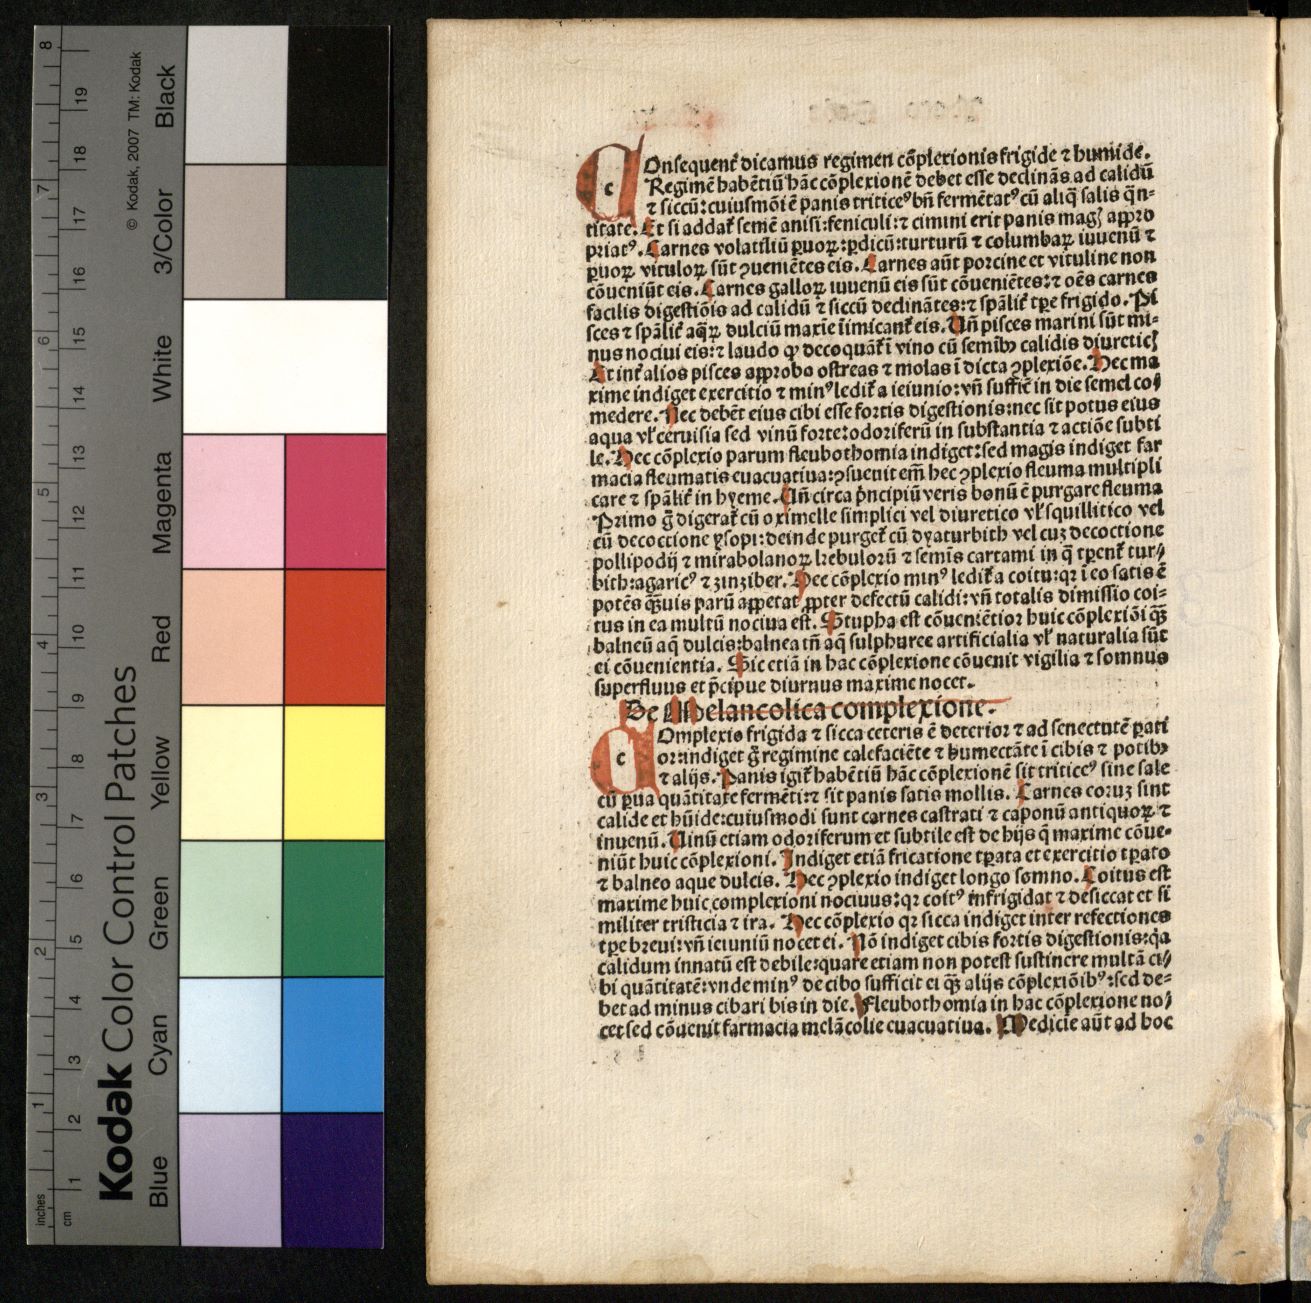 COnsequenť dicamus regimen cõplexionis frigide ⁊ humide.
Regimē habētiū hāc cõplexionē debet esse declināſ ad calidū
⁊ siccū: cuiusmõi ē panis triticeꝰ bñ fermētatꝰ cū aliq̄ salis q̄n-
titate. Et si addať semē anisi: feniculi: ⁊ cimini erit panis magꝭ appro
priatꝰ. Carnes volatiliū puoꝝ: pdicū: turturū ⁊ columbaꝝ iuuenū ⁊
puoꝝ vituloꝝ sūt ꝯueniētes eis. Carnes aūt porcine et vituline non
cõueniūt eis. Carnes galloꝝ iuuenū eis sūt cõueniētes: ⁊ oēs carnes
facilis digestiõis ad calidū ⁊ siccū declinātes: ⁊ spāliť tꝑe frigido. Pi
sces ⁊ spāliť aq̄ꝝ dulciū maxīe ĩimicanť eis. Uñ pisces marini sūt mi-
nus nociui eis: ⁊ laudo ꝙ decoquāť ĩ vino cū semībꝫ calidis diureticꝭ
Et inť alios pisces approbo ostreas ⁊ molas ĩ dicta ꝯplexiõe. Hec ma
xime indiget exercitio ⁊ minꝰ lediť a ieiunio: vñ suffic̄ in die semel co⸗
medere. Nec debēt eius cibi esse fortis digestionis: nec sit potus eius
aqua vľ ceruisia sed vinū forte: odoriferū in substantia ⁊ actiõe subti
le. Hec cõplexio parum fleubothomia indiget: sed magis indiget far
macia fleumatis euacuatiua: ꝯsueuit em̄ hec ꝯplexio fleuma multipli
care ⁊ spāliť in hyeme. Uñ circa p̄ncipiū veris bonū ē purgare fleuma
Primo g̃ digerať cū oximelle simplici vel diuretico vľ squillitico vel
cū decoctione ysopi: deinde purgeť cū dyaturbith vel cuꝫ decoctione
pollipodij ⁊ mirabolanoꝝ kebulorū ⁊ semīs cartami in q̄ tꝑenť tur⸗
bith: agaricꝰ ⁊ zinziber. Hec cõplexio minꝰ lediť a coitu: qꝛ ĩ eo satis ē
potēs q̄uis parū appetat ꝓpter defectū calidi: vñ totalis dimissio coi-
tus in ea multū nociua est. Stupha est cõuenientior huic cõplexiõi q̄ꝫ
balneū aq̄ dulcis: balnea tñ aq̄ sulphuree artificialia vľ naturalia sūt
ei cõuenientia. Sic etiā in hac cõplexione cõuenit vigilia ⁊ somnus
superfluus et p̄cipue diurnus maxime nocet.
De Melancolica complexione.
COmplexio frigida ⁊ sicca ceteris ē deterior ⁊ ad senectutē pati
or: indiget g̃ regimine calefaciēte ⁊ humectāte ĩ cibis ⁊ potibꝫ
⁊ alijs. Panis igiť habētiū hāc cõplexionē sit triticeꝰ sine sale
cū pua quātitate fermēti: ⁊ sit panis satis mollis. Carnes coruꝫ sint
calide et hūide: cuiusmodi sunt carnes castrati ⁊ caponū antiquoꝝ ⁊
inuenū. Uinū etiam odoriferum et subtile est de hijs q̄ maxime cõue-
niūt huic cõplexioni. Indiget etiā fricatione tꝑata et exercitio tꝑato
⁊ balneo aque dulcis. Hec ꝯplexio indiget longo somno. Coitus est
maxime huic complexioni nociuus: qꝛ coitꝰ infrigidat ⁊ desiccat et si
militer tristicia ⁊ ira. Hec cõplexio qꝛ sicca indiget inter refectiones
tꝑe breui: vñ ieiuniū nocet ei. Nõ indiget cibis fortis digestionis: q̄a
calidum innatū est debile: quare etiam non potest sustinere multā ci⸗
bi quātitatē: vnde minꝰ de cibo sufficit ei q̄ꝫ alijs cõplexiõibꝰ: sed de-
bet ad minus cibari bis in die. Fleubothomia in hac cõplexione no⸗
cet sed cõuenit farmacia melācolie euacuatiua. Medicie aūt ad hoc
Kodak Color Control Patches
© Kodak, 2007 TM: Kodak
Blue Cyan Green Yellow Red Magenta White 3/Color Black
inches 1 2 3 4 5 6 7 8
cm 1 2 3 4 5 6 7 8 9 10 11 12 13 14 15 16 17 18 19